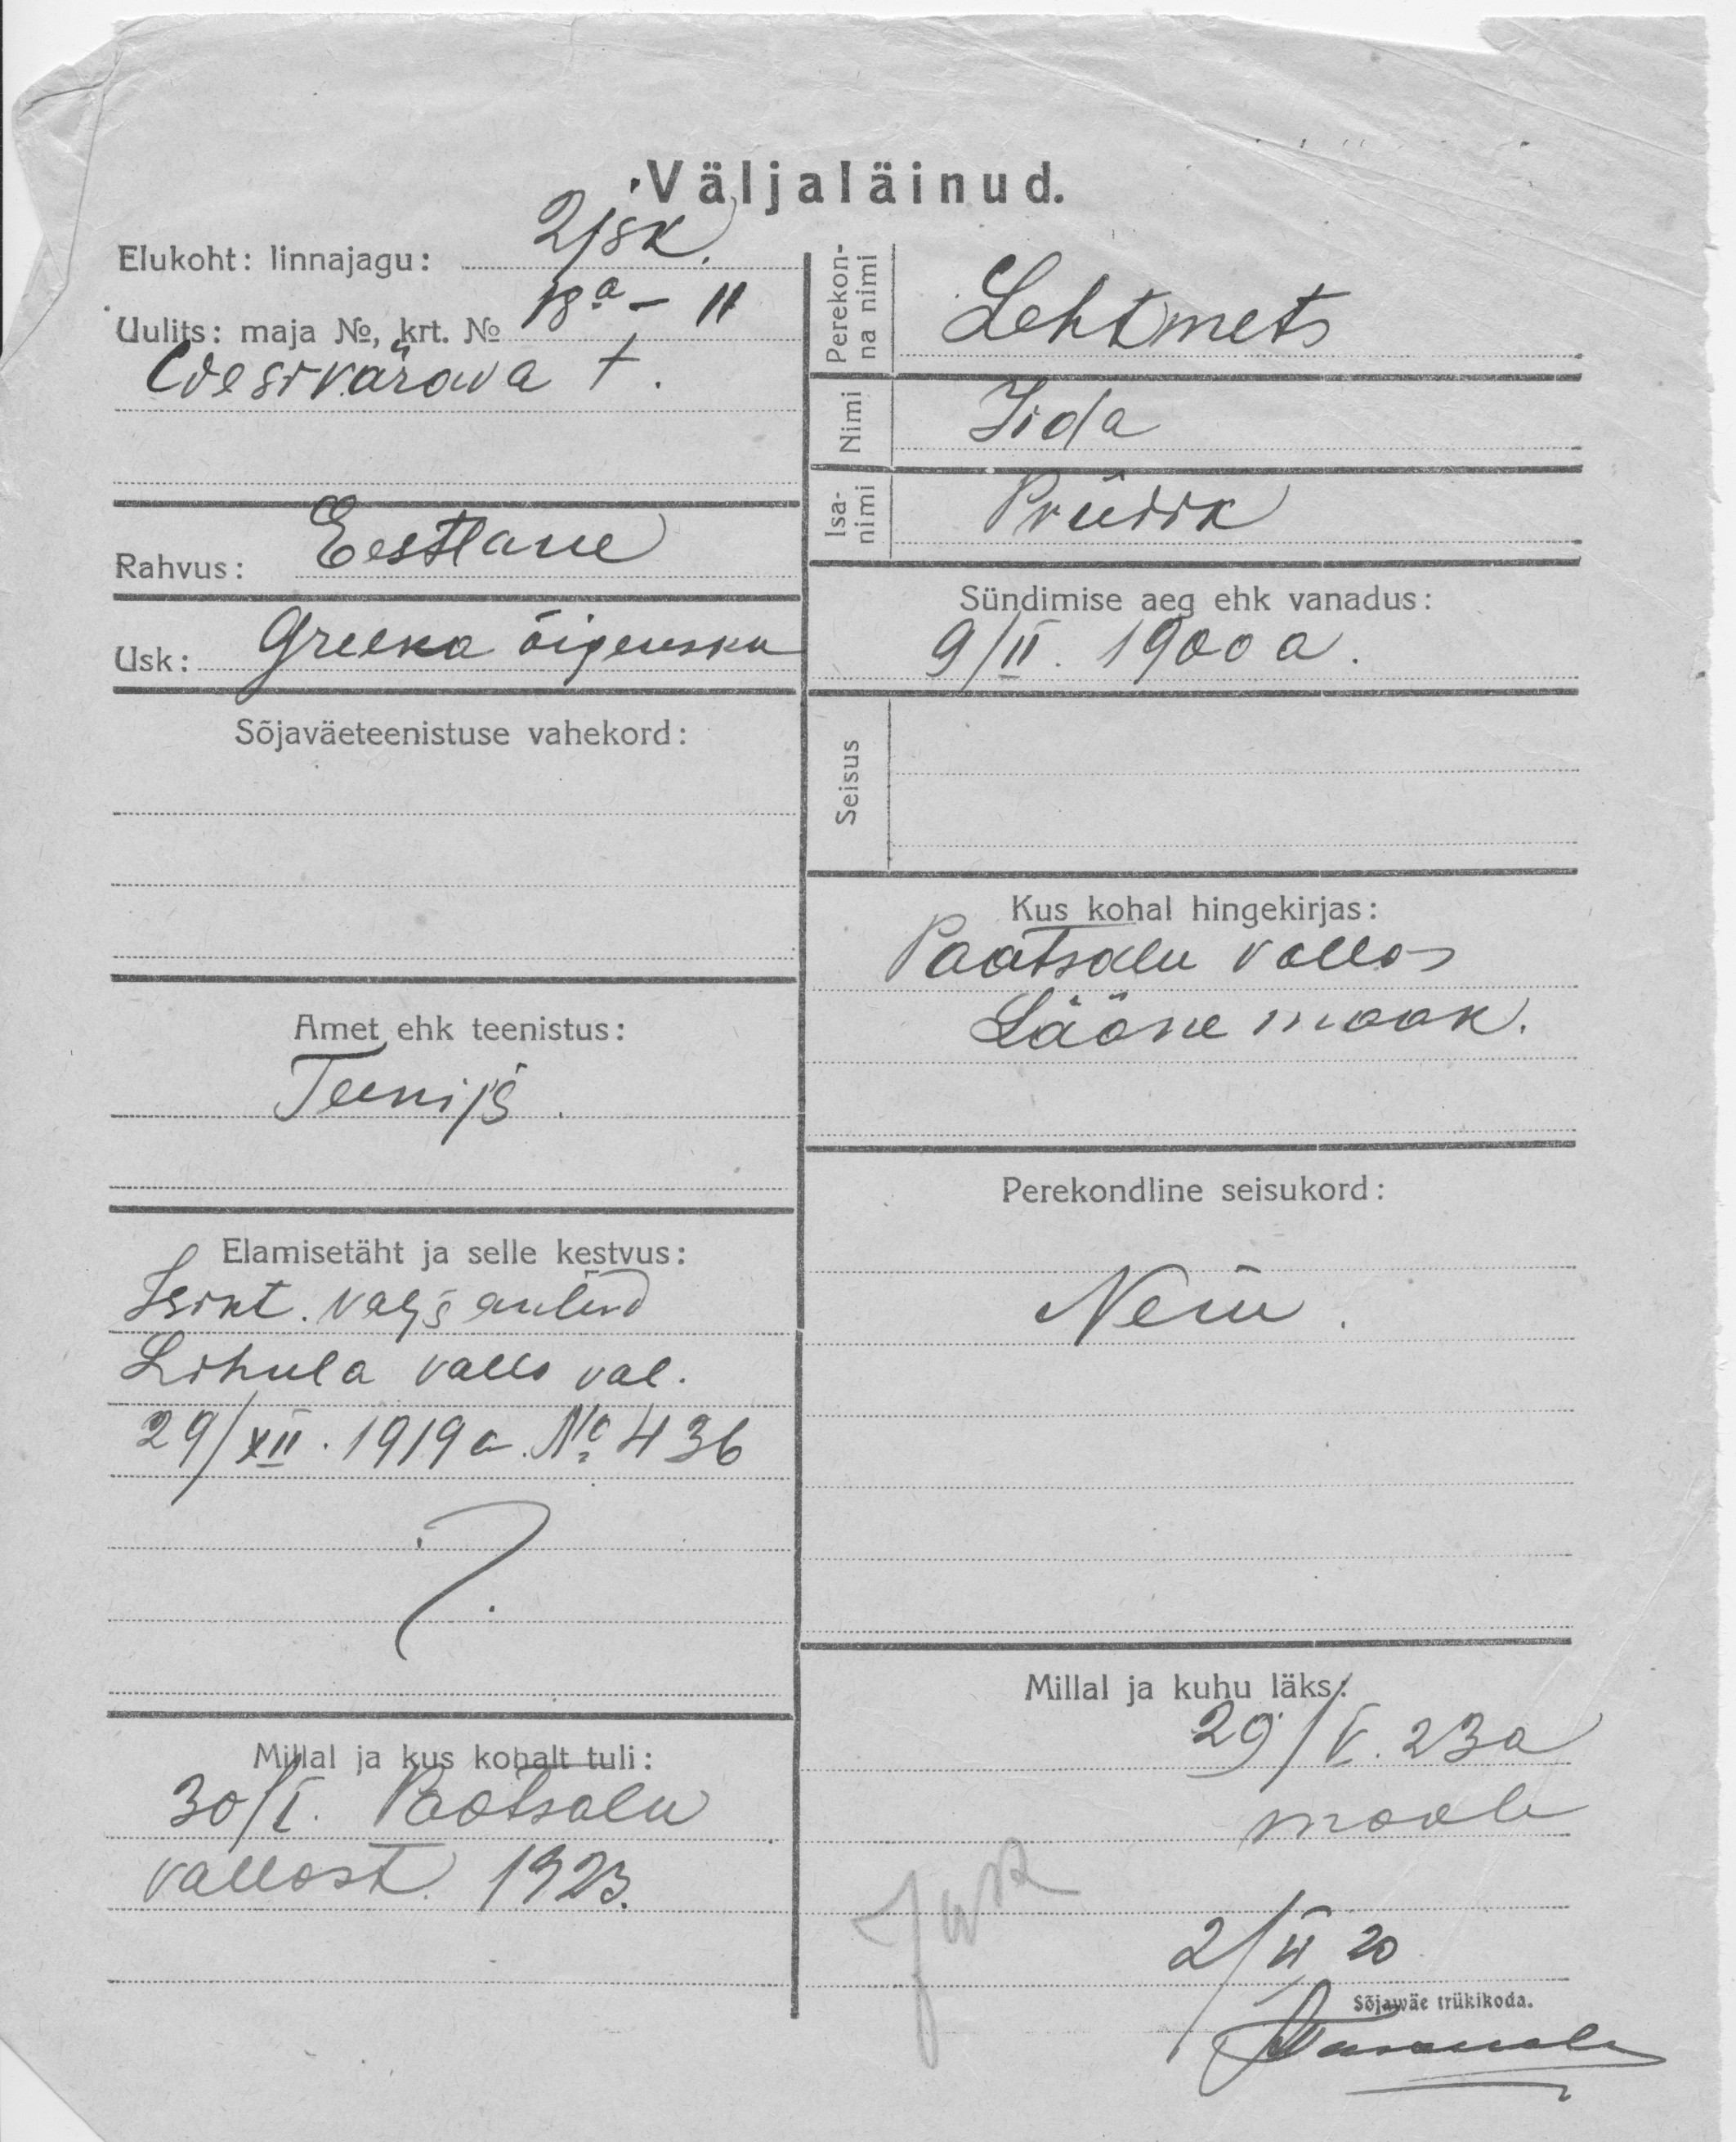 Väljaläinud.
Elukoht: linnajagu: 2/sk.
Uulits: maja №, krt. № 18a – 11
Wesivärava t.
Rahvus: Eestlane
Usk: Greeka õigeusku
Sõjaväeteenistuse vahekord:
Amet ehk teenistus:
Teenija.
Elamisetäht ja selle kestvus:
Isikt. välja antud
Lihula valla val.
29/XII. 1919 a. № 436
Millal ja kus kohalt tuli:
30/I. Paatsalu
vallast. 1923.
Perekonna nimi
Lehtmets
Nimi
Iida
Isanimi
Priidik
Sündimise aeg ehk vanadus:
9/II. 1900 a.
Seisus
Kus kohal hingekirjas:
Paatsalu vallas
Lääne maak.
Perekondline seisukord:
Neiu.
Millal ja kuhu läks:
29/V. 23 a
maale
2/II 20
Sõjawäe trükikoda.